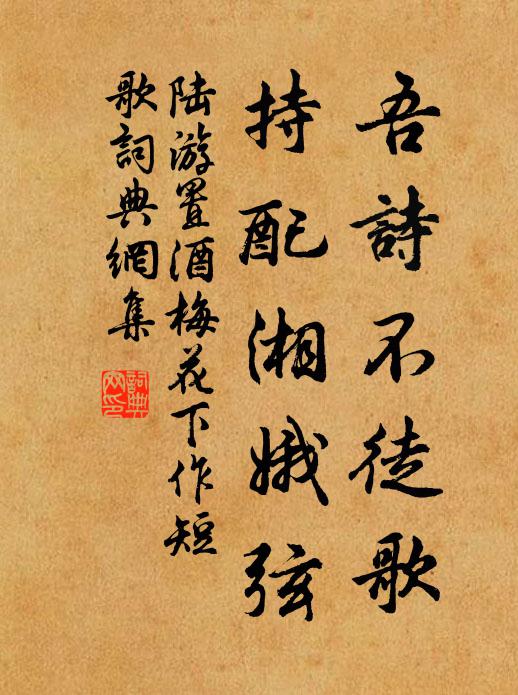 吾詩不徒歌
持配湘娥弦
陆游置酒梅花下作短
歌詞典網集
詞典
网印